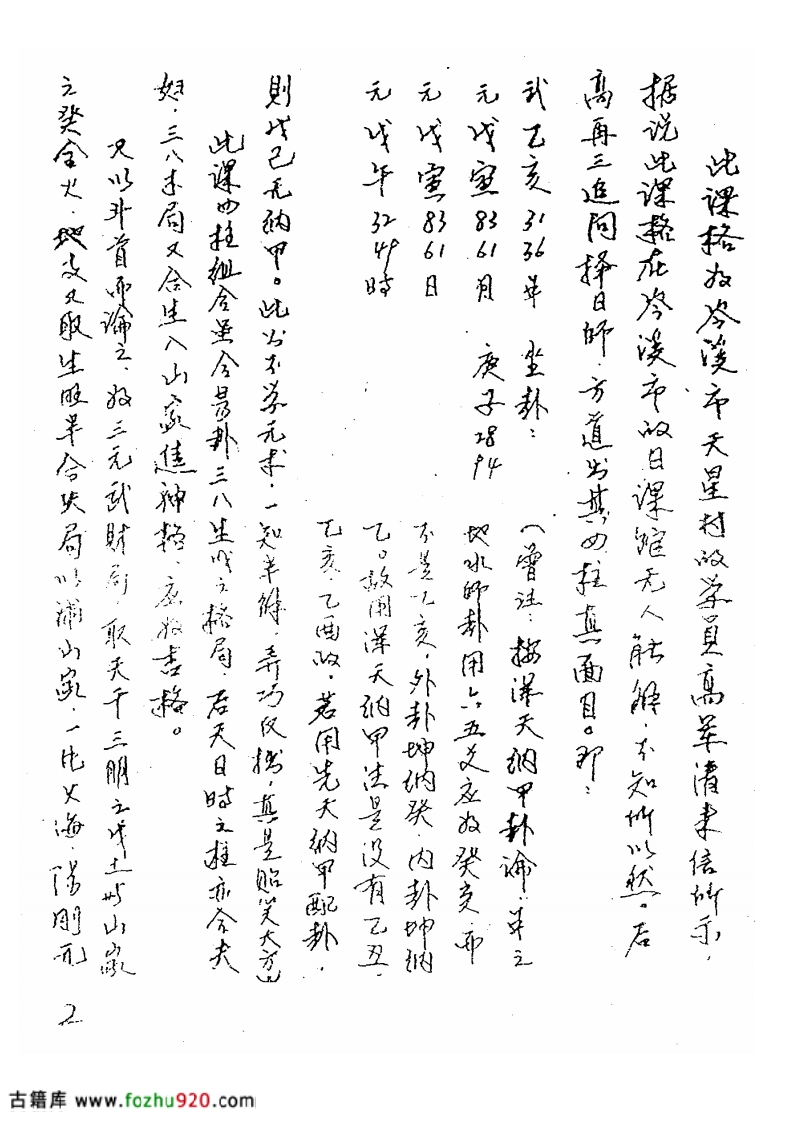 此课格为岑溪市天星村的学员高军清来信所示，
据说此课格在岑溪市的日课馆无人能解，不知所以然。后
高再三追问择日师，方道出其四柱真面目。即：
武乙亥 31 36 年 坐卦：
元戊寅 83 61 月 庚子 28 94
元戊寅 83 61 日
元戊午 32 49 时
（曾注：按浑天纳甲卦论，年之
地水师卦用六五爻应为癸亥，而
不是乙亥，外卦坤纳癸，内卦坤纳
乙。故用浑天纳甲法是没有乙丑、
乙亥、乙酉的，若用先天纳甲配卦，
则戊己无纳甲。此公不学无术，一知半解，弄巧反拙，真是贻笑大方）
此课四柱组合虽合易卦三八生成之格局，后天日时之柱亦合夫
妇，三八木局又合生入山家进神格，应为吉格。
又以斗首而论之，为三元武财局，取天干三朋之戊土 山家
之癸 火，地支又取生旺 合火局以 山家，一片火海，阳刚无
2
古籍库 www.fozhu920.com